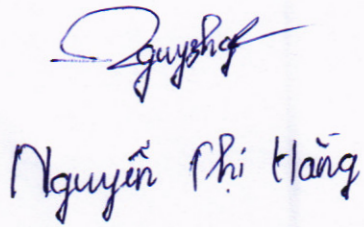 Nguyễn Thị Hằng